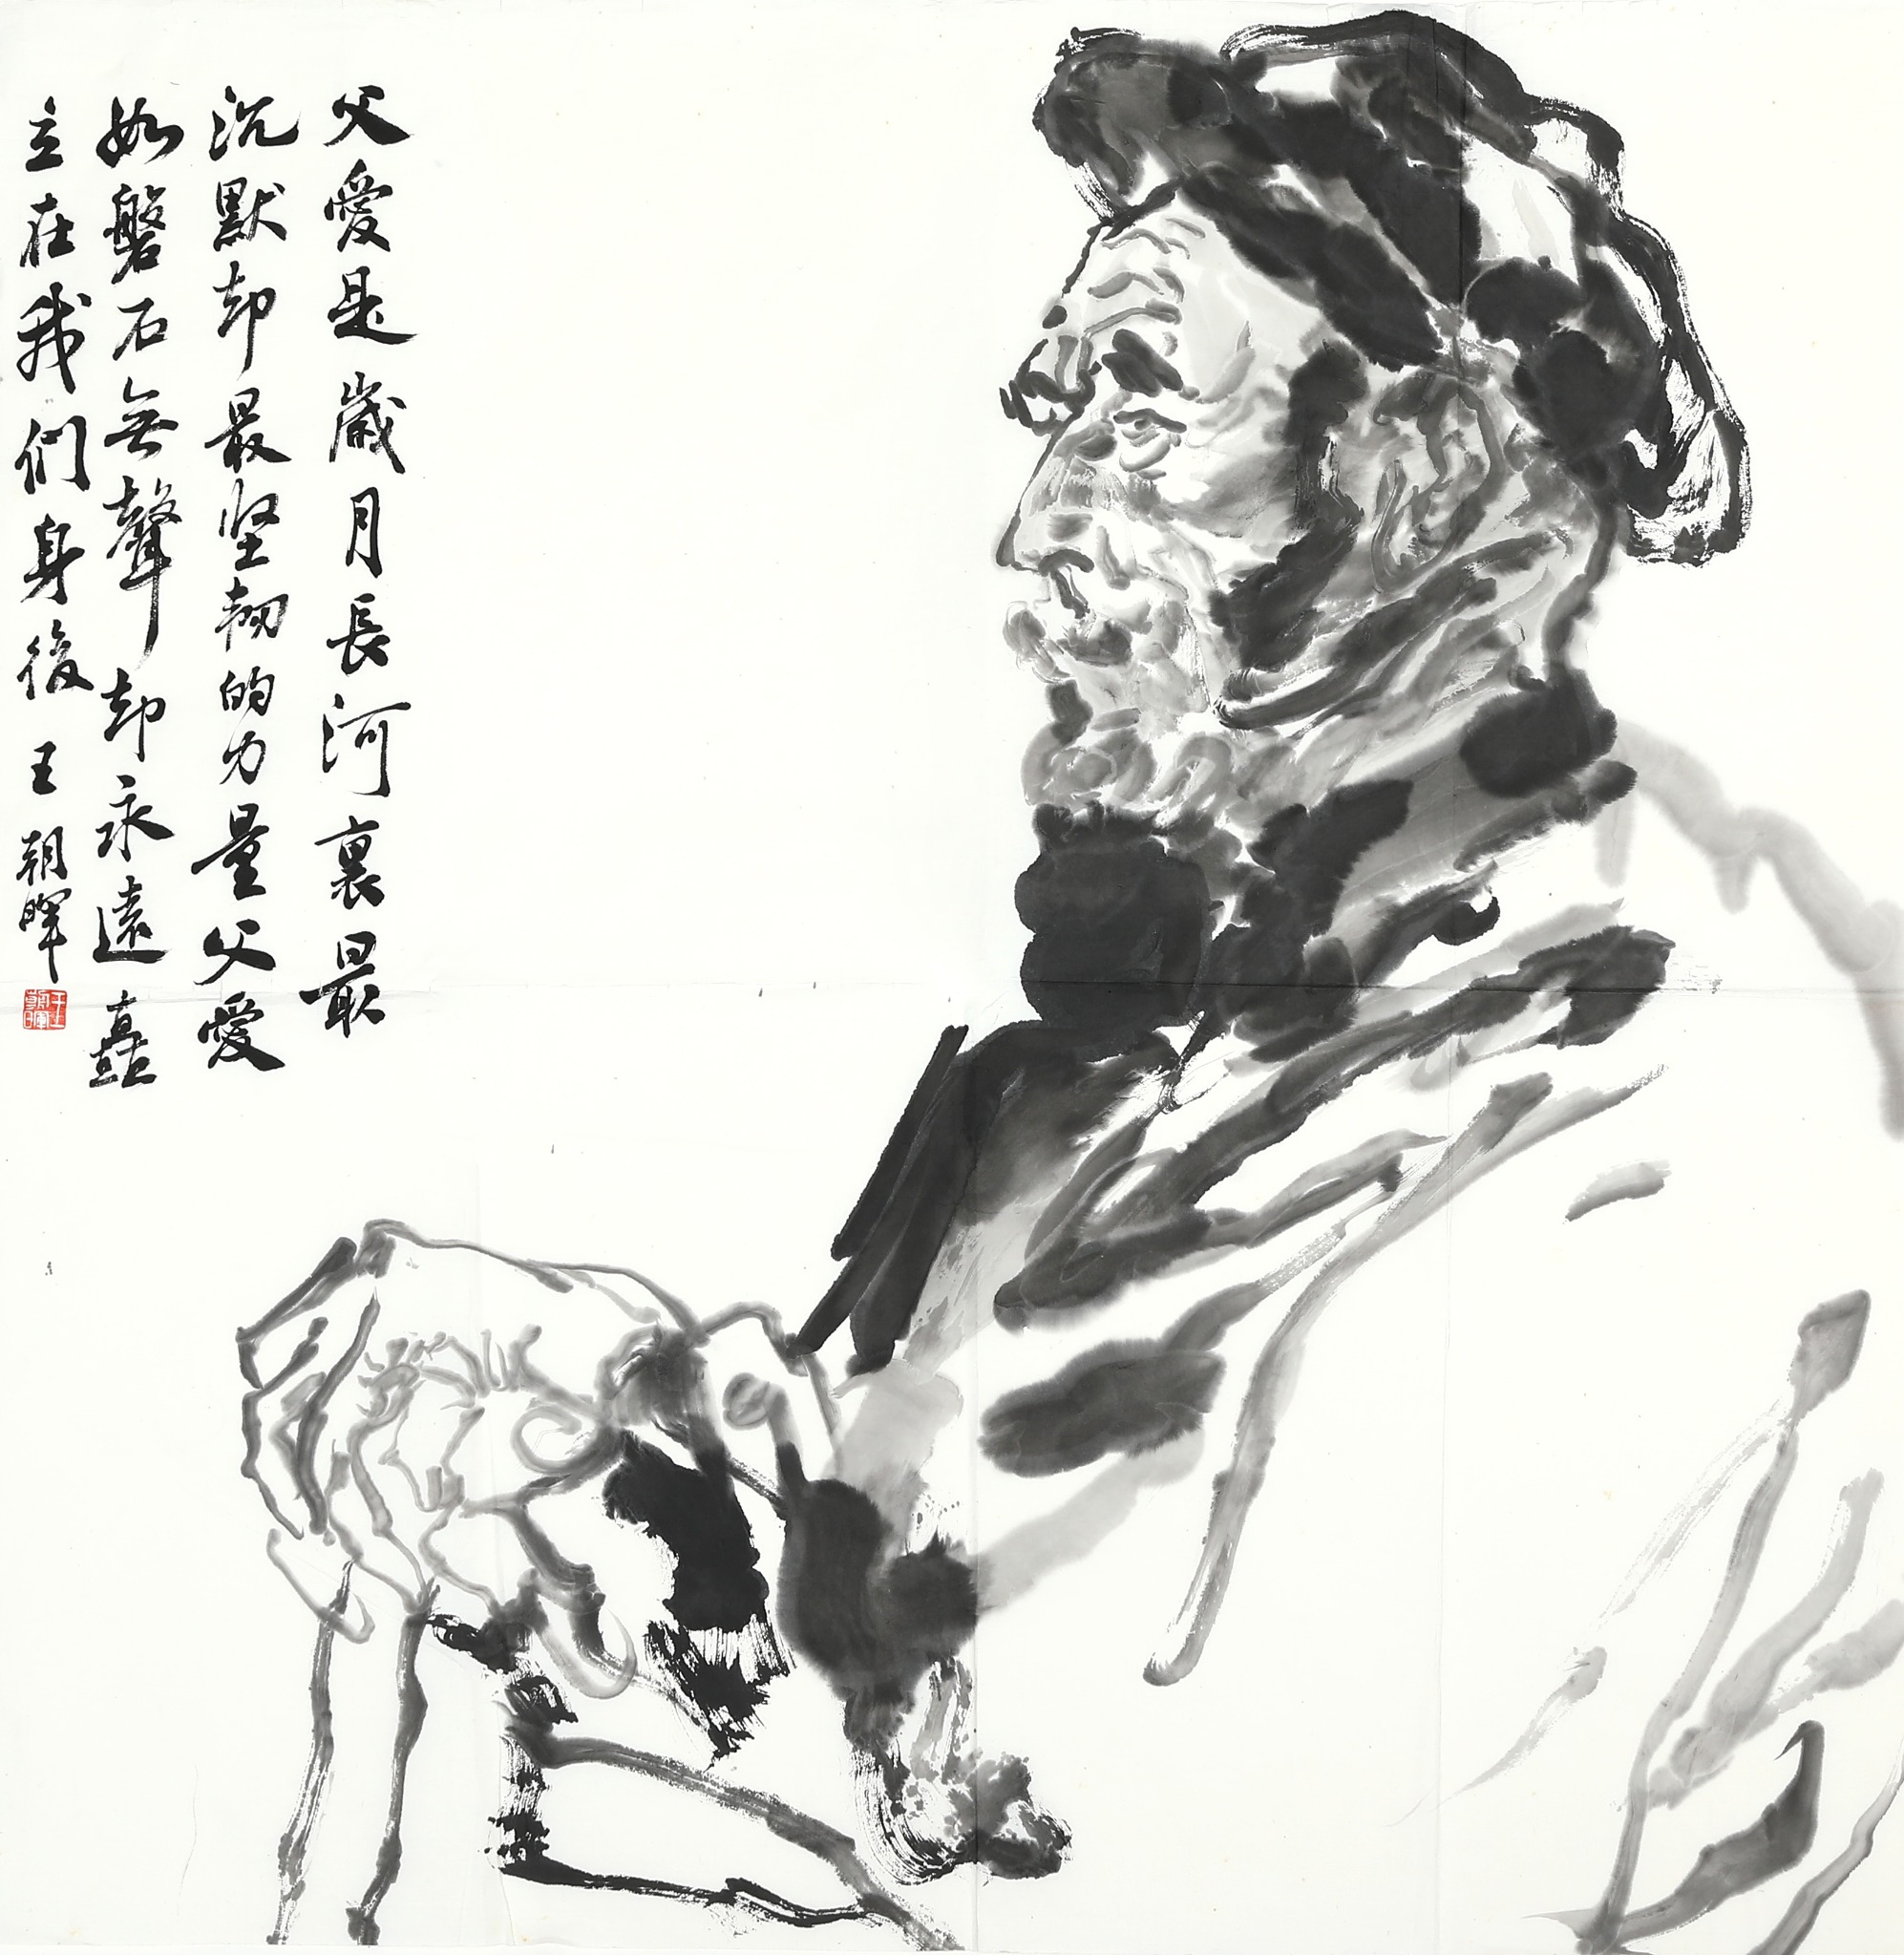 父愛是歲月長河裏最
沉默却最坚韌的力量父愛
如磐石無聲却永遠矗
立在我們身後 王朝暉